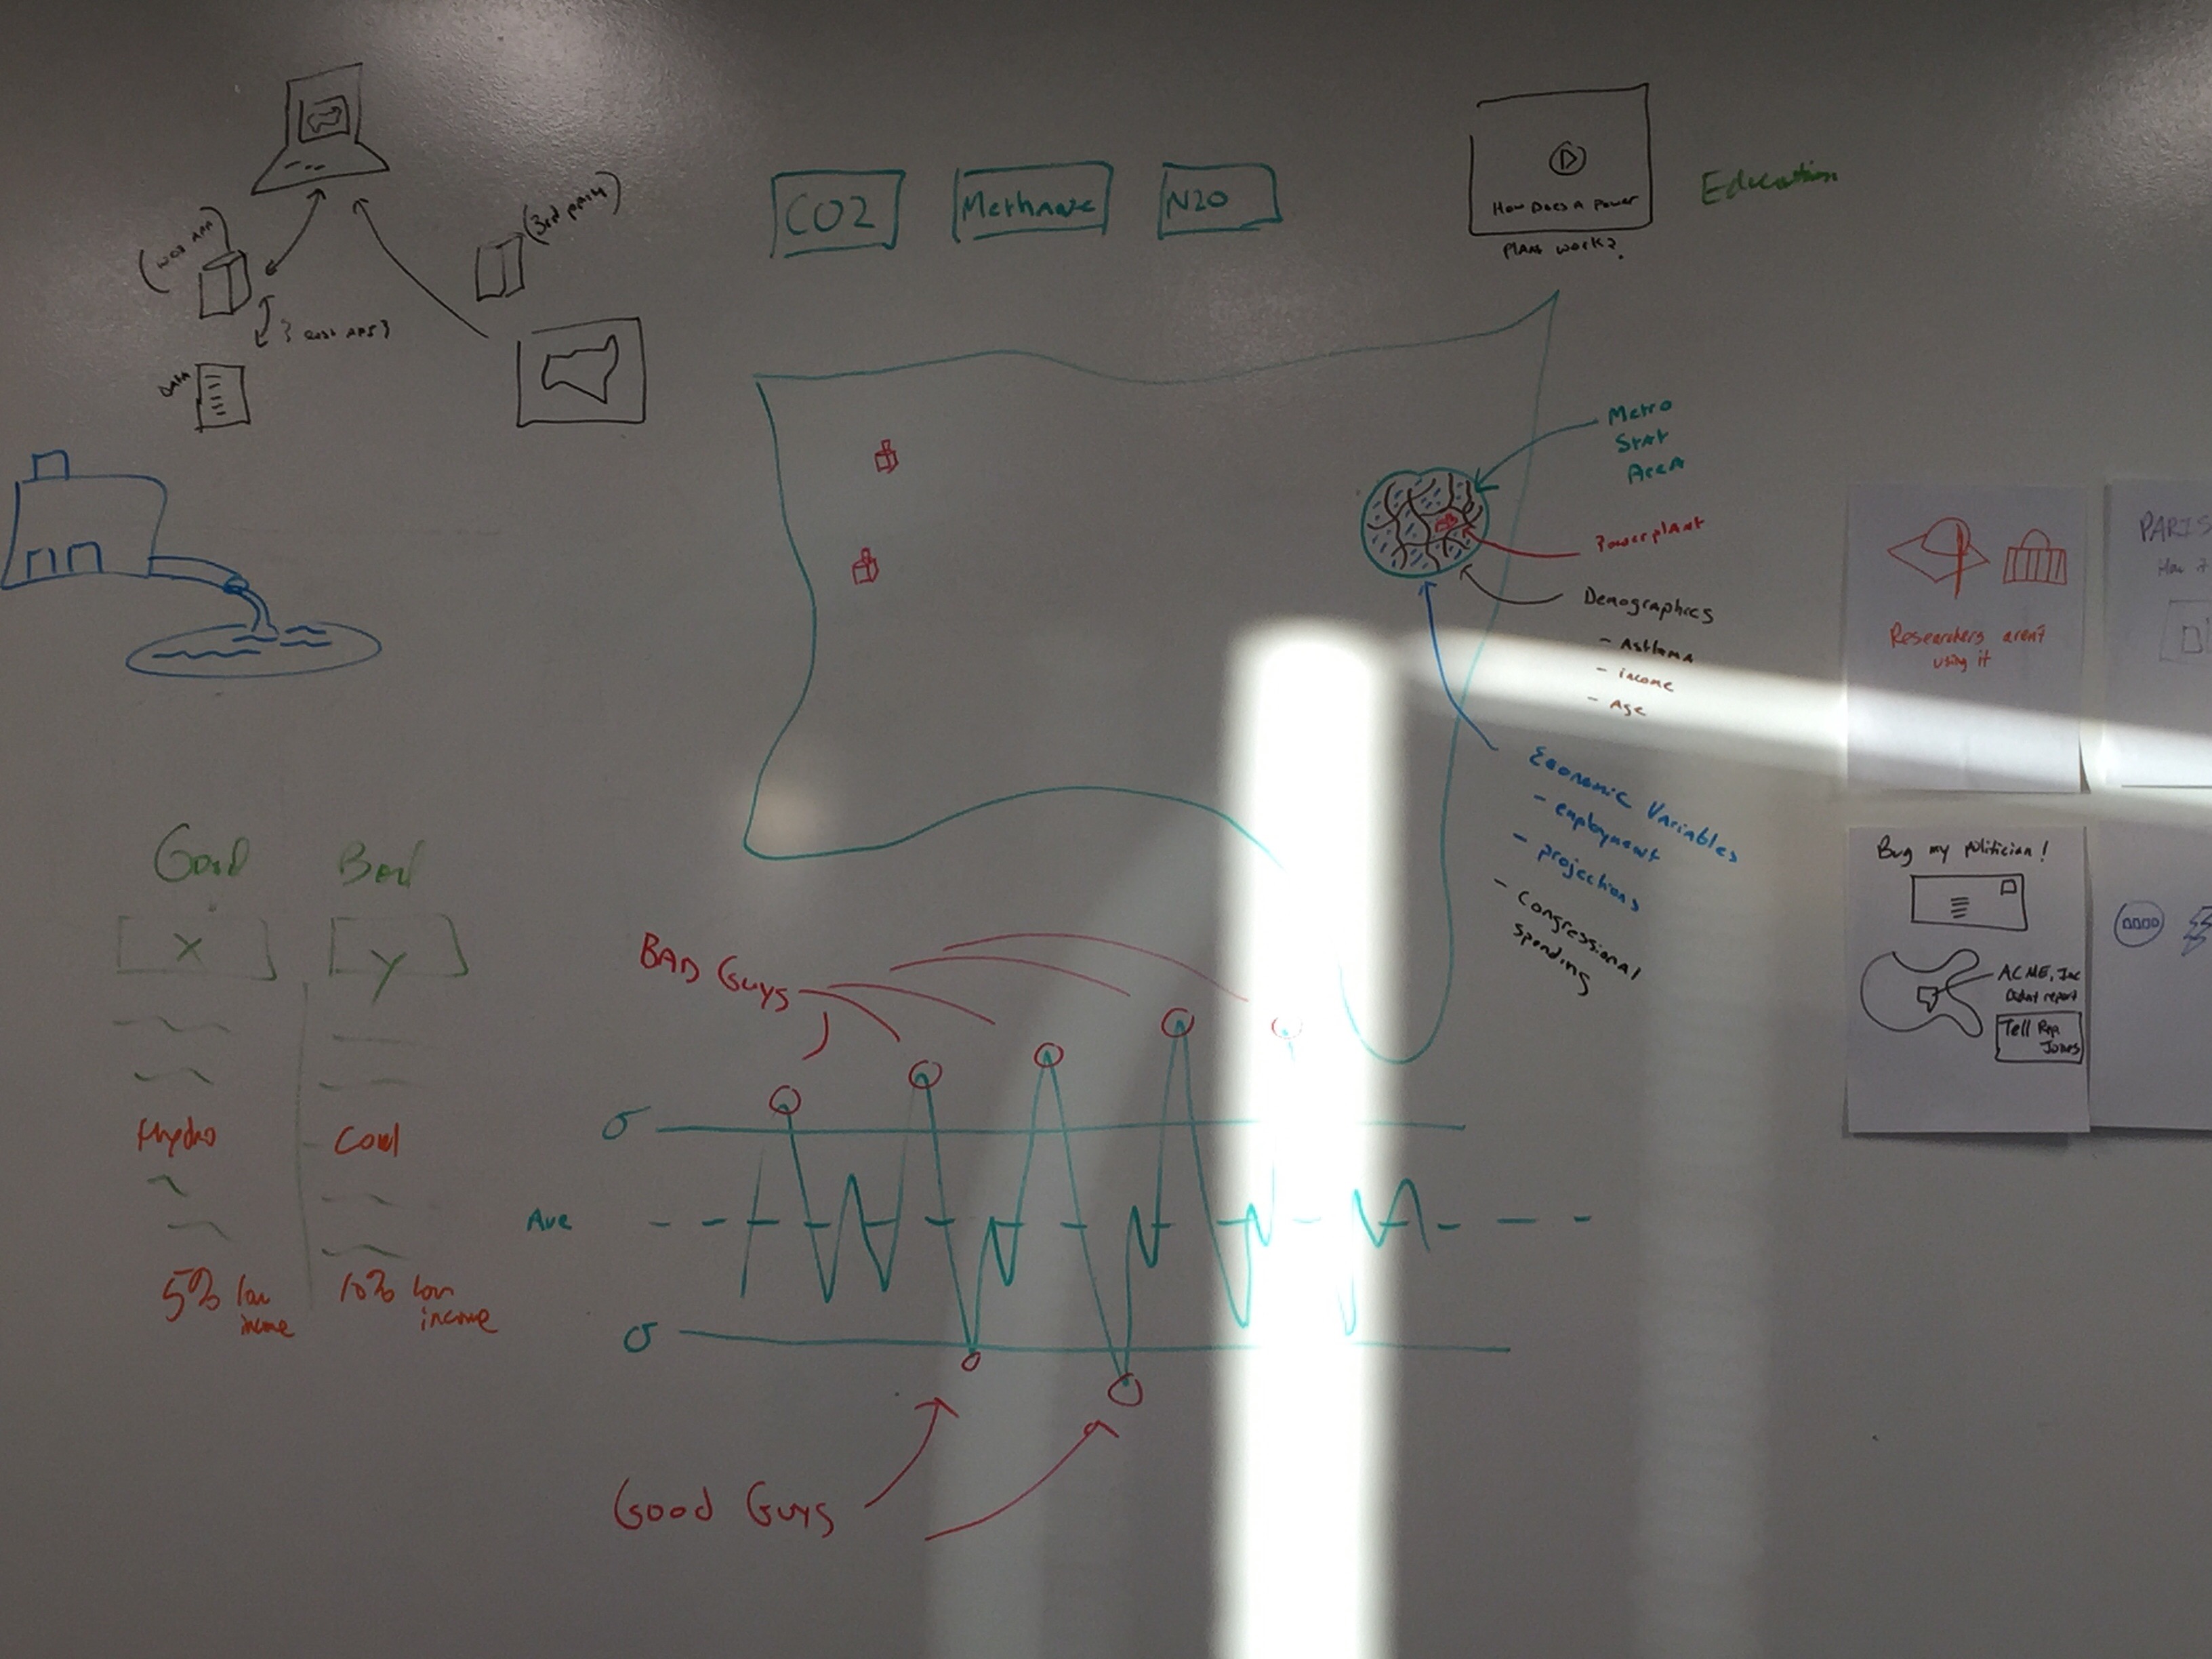 (3rd party)
(web app)
DATA
CO2
Methnae
N2O
How Does a power
plant work?
Education
Metro
Stat
Area
Powerplant
Demographics
- Asthma
- income
- Age
Economic Variables
- employment
- projections
- Congressional
spending
Good
Bad
X
y
Hydro
Coal
5% low
income
10% low
income
BAD Guys
σ
Ave
σ
Good Guys
Researchers aren't
using it
PARIS
How it
Bug my politician!
ACME, Inc
Didn't report
Tell Rep
Jones